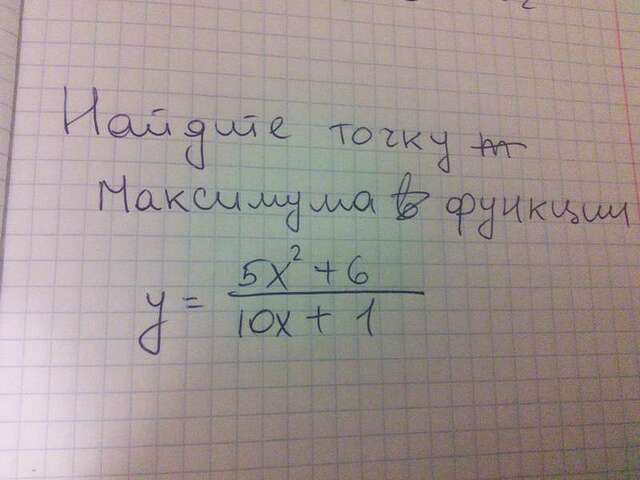 Найдите точку
Максимума функции
y = \frac{5x^2 + 6}{10x + 1}